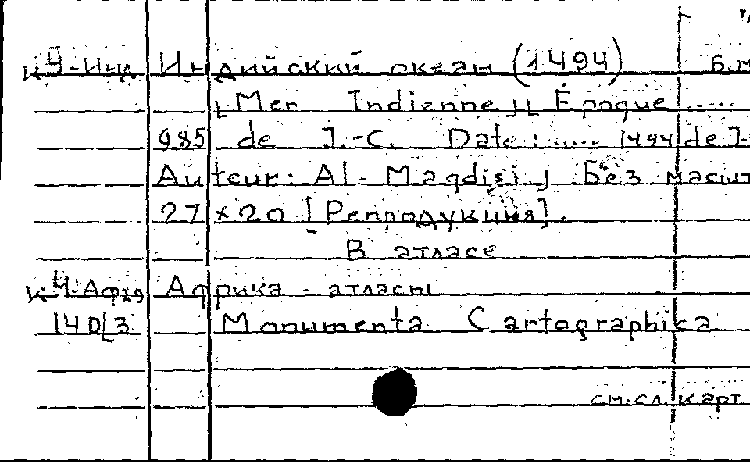 к Ч-Инд Индийский океан (1494) Б.м
[Mer Indienne]] Époque .....
985 de J.-C. Date: ..... 1494 de J-
Auteur: Al-Maqdisi] Без масшт
27 x 20 [Репподукция].
В атласе
к Ч-Афр Африка - атласы
140/3 Monumenta Cartographica
см.сл.карт